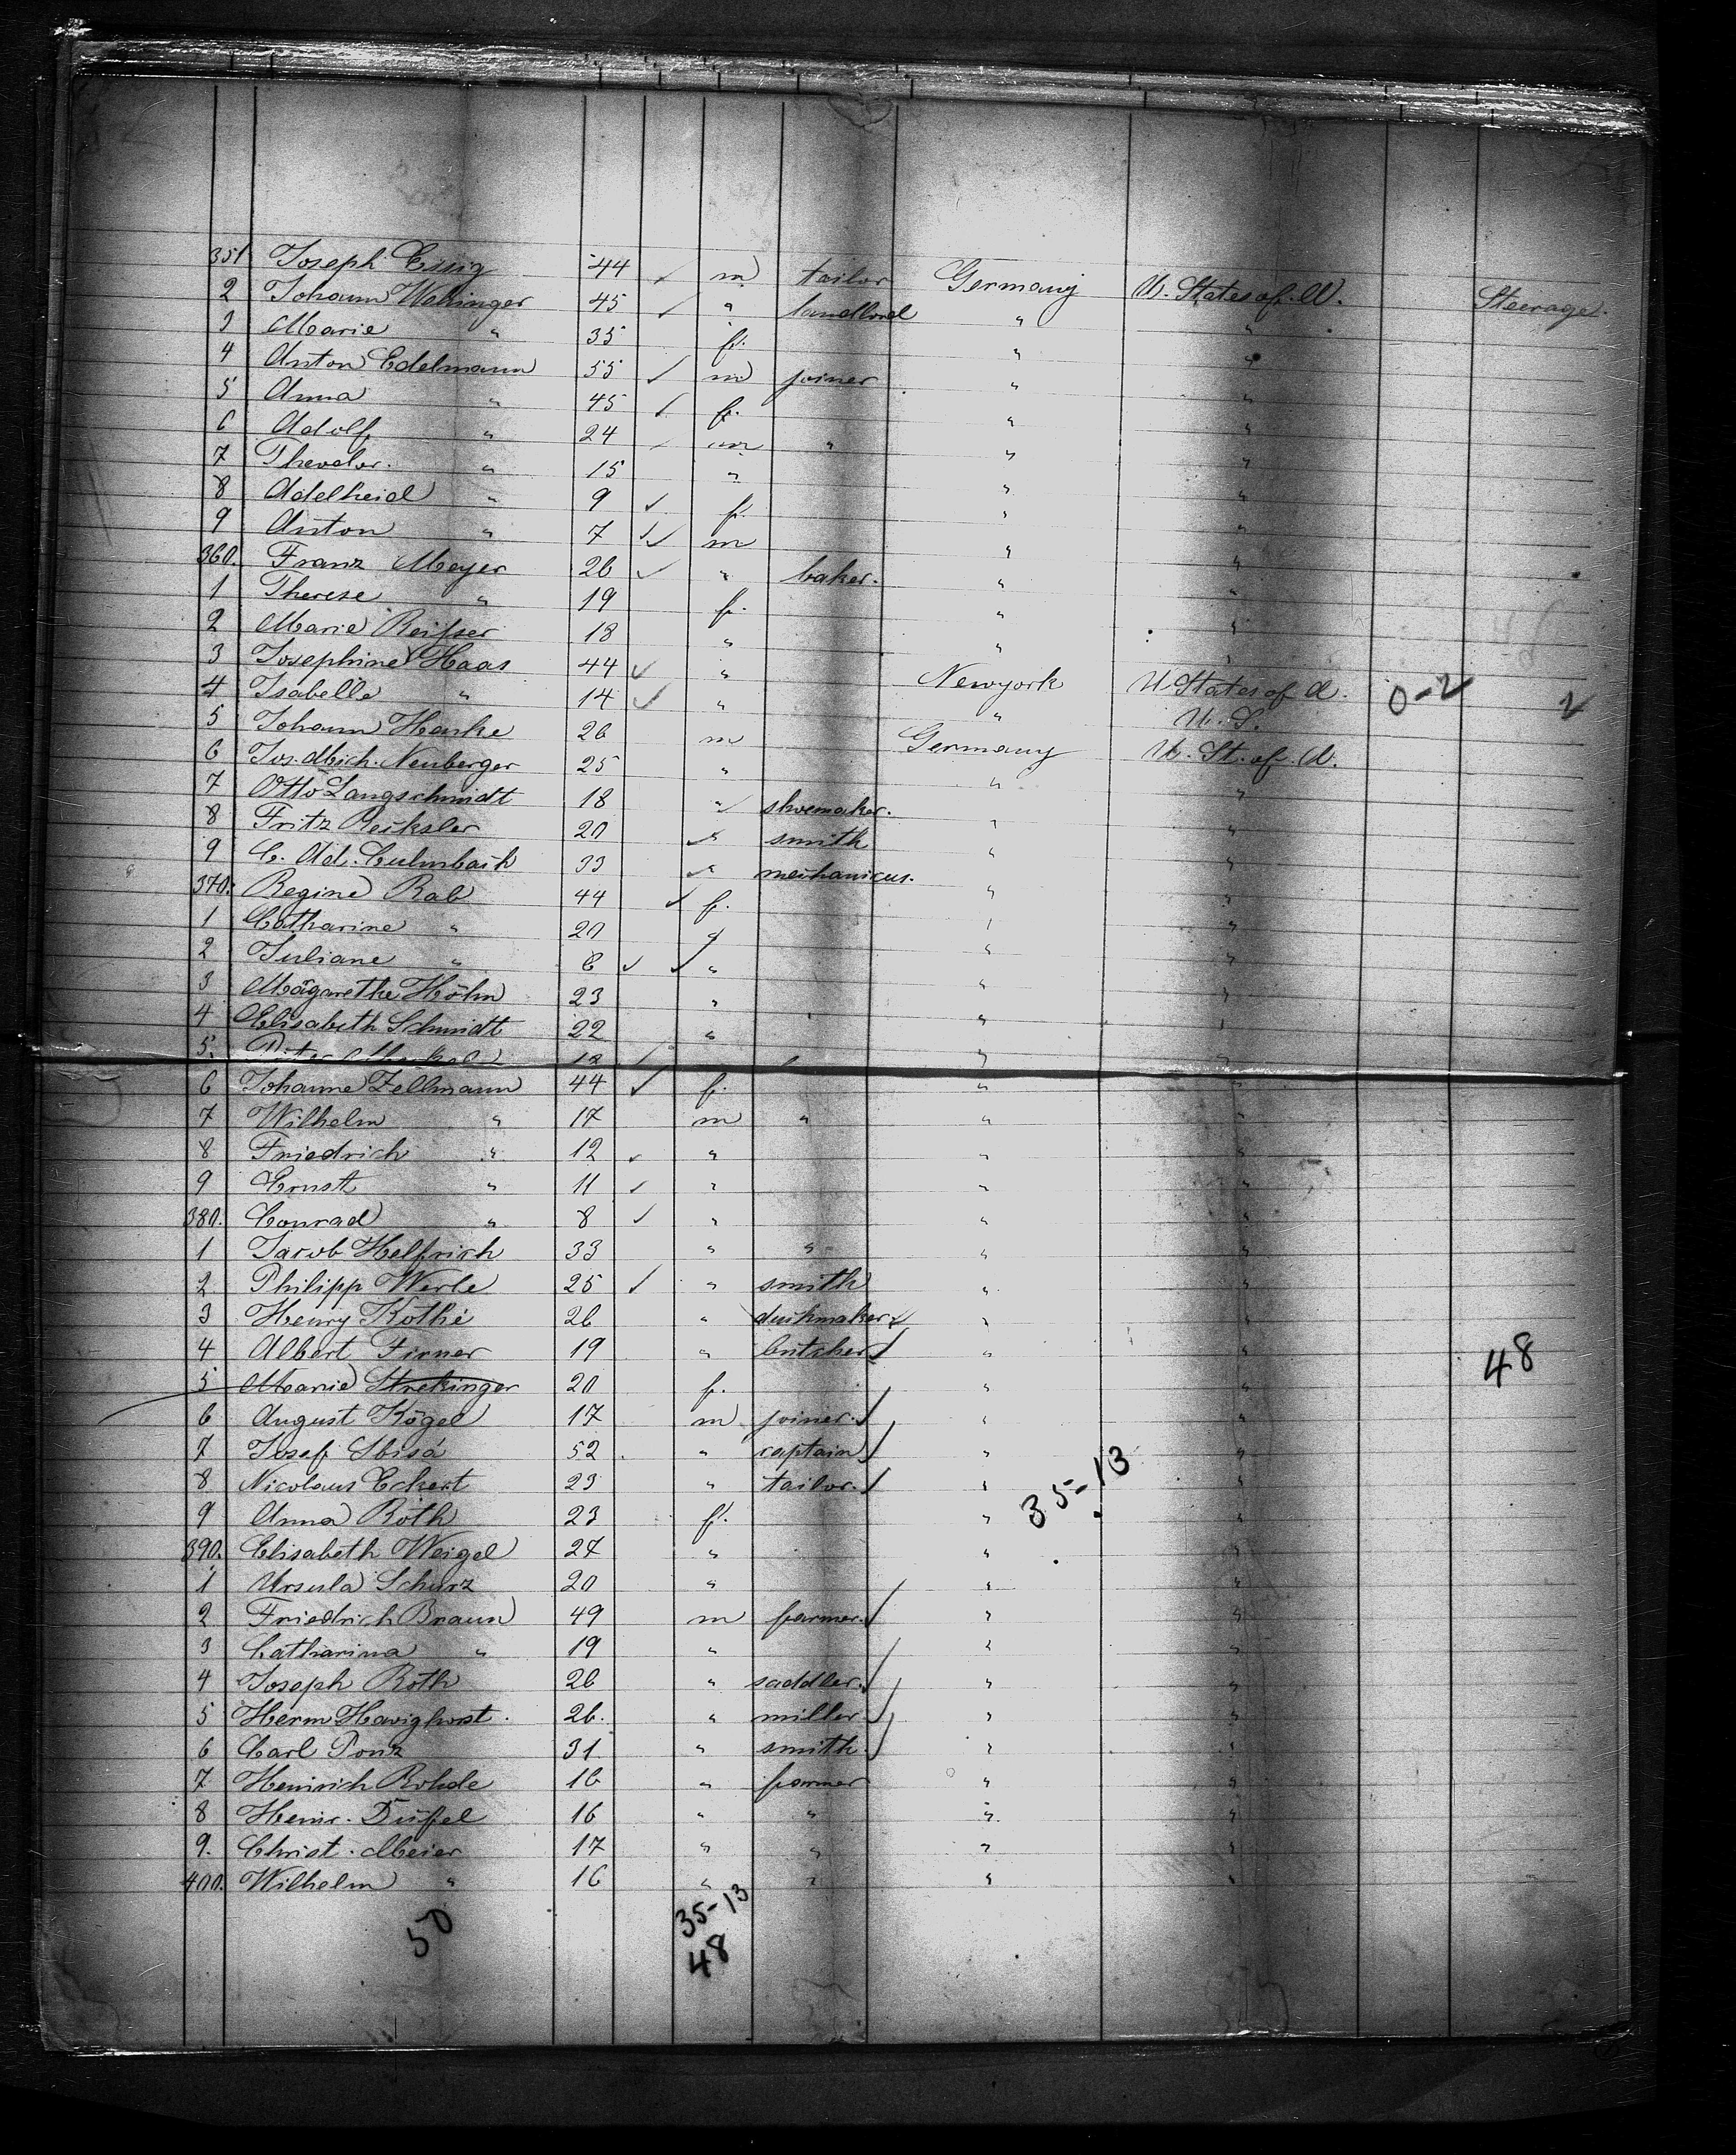 351 Joseph Essig 44 m tailor Germany U. States of A. Steerage.
2 Johann Wehinger 45 " landlord " "
3 Marie " 35 f. " "
4 Anton Edelmann 55 m joiner " "
5 Anna " 45 f. " "
6 Adolf " 24 m " " "
7 Theodor. " 15 " " "
8 Adelheid " 9 f. " "
9 Anton " 7 m " "
360. Franz Meyer 26 " baker. " "
1 Therese " 19 f. " "
2 Marie Reifser 18 " " "
3 Josephine Haas 44 " Newyork U States of A. 0-2 2
4 Isabelle " 14 " " U. S.
5 Johann Henke 26 m Germany U. St. of. A.
6 Jos. Mich. Neuberger 25 " " "
7 Otto Langschmidt 18 " shoemaker. " "
8 Fritz 20 " smith " "
9 C. Ad. Culmbach 33 " mechanicus. " "
370. Regine Rab 44 f. " "
1 Catharine " 20 " " "
2 Juliane " 6 " " "
3 Mägarethe Höhn 23 " " "
4 Elisabeth Schmidt 22 " " "
5. Peter
6 Johanne Zellmann 44 f. " "
7 Wilhelm " 17 m " " "
8 Friedrich " 12 " " "
9 Ernst " 11 " " "
380. Conrad " 8 " " "
1 Jacob Helfrich 33 " " " "
2 Philipp Werle 25 " smith " "
3 Henry Köthe 26 " " "
4 Albert Firner 19 " butcher " "
5 Marie Strekinger 20 f. " "
6 August Kögel 17 m joiner. " "
7 Josef Sbisá 52 " captain " "
8 Nicolaus Eckert 23 " tailor. " "
9 Anna Roth 23 f. " "
390. Elisabeth Weigel 27 " " "
1 Ursula Schurz 20 " " "
2 Friedrich Braun 49 m farmer. " "
3 Catharina " 19 " " "
4 Joseph Roth 26 " saddler. " "
5 Herm Havighorst. 26. " miller. " "
6 Carl Ponz 31 " smith. " "
7 Heinrich Rohde 16 " farmer " "
8 Heinr. Düffel 16 " " " "
9. Christ. Meier 17 " " " "
400. Wilhelm " 16 " " " "
48
35-13
50 35-13
48